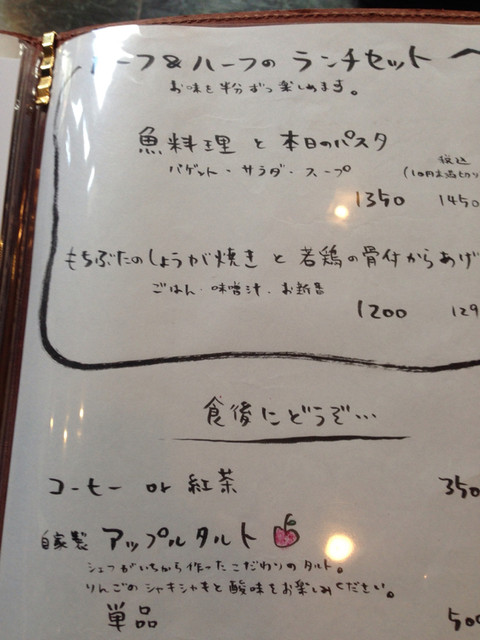 ハーフ&ハーフのランチセット
お味を半分ずつ楽しめます。
魚料理 と 本日のパスタ
税込
バゲット・サラダ・スープ
(10円未満切り
1350 1450
もちぶたのしょうが焼き と 若鶏の骨付からあげ
ごはん・味噌汁・お新香
1200 129
食後にどうぞ…
コーヒー or 紅茶 350
自家製 アップルタルト
シェフがいちから作ったこだわりのタルト。
りんごのシャキシャキと酸味をお楽しみください。
単品 500